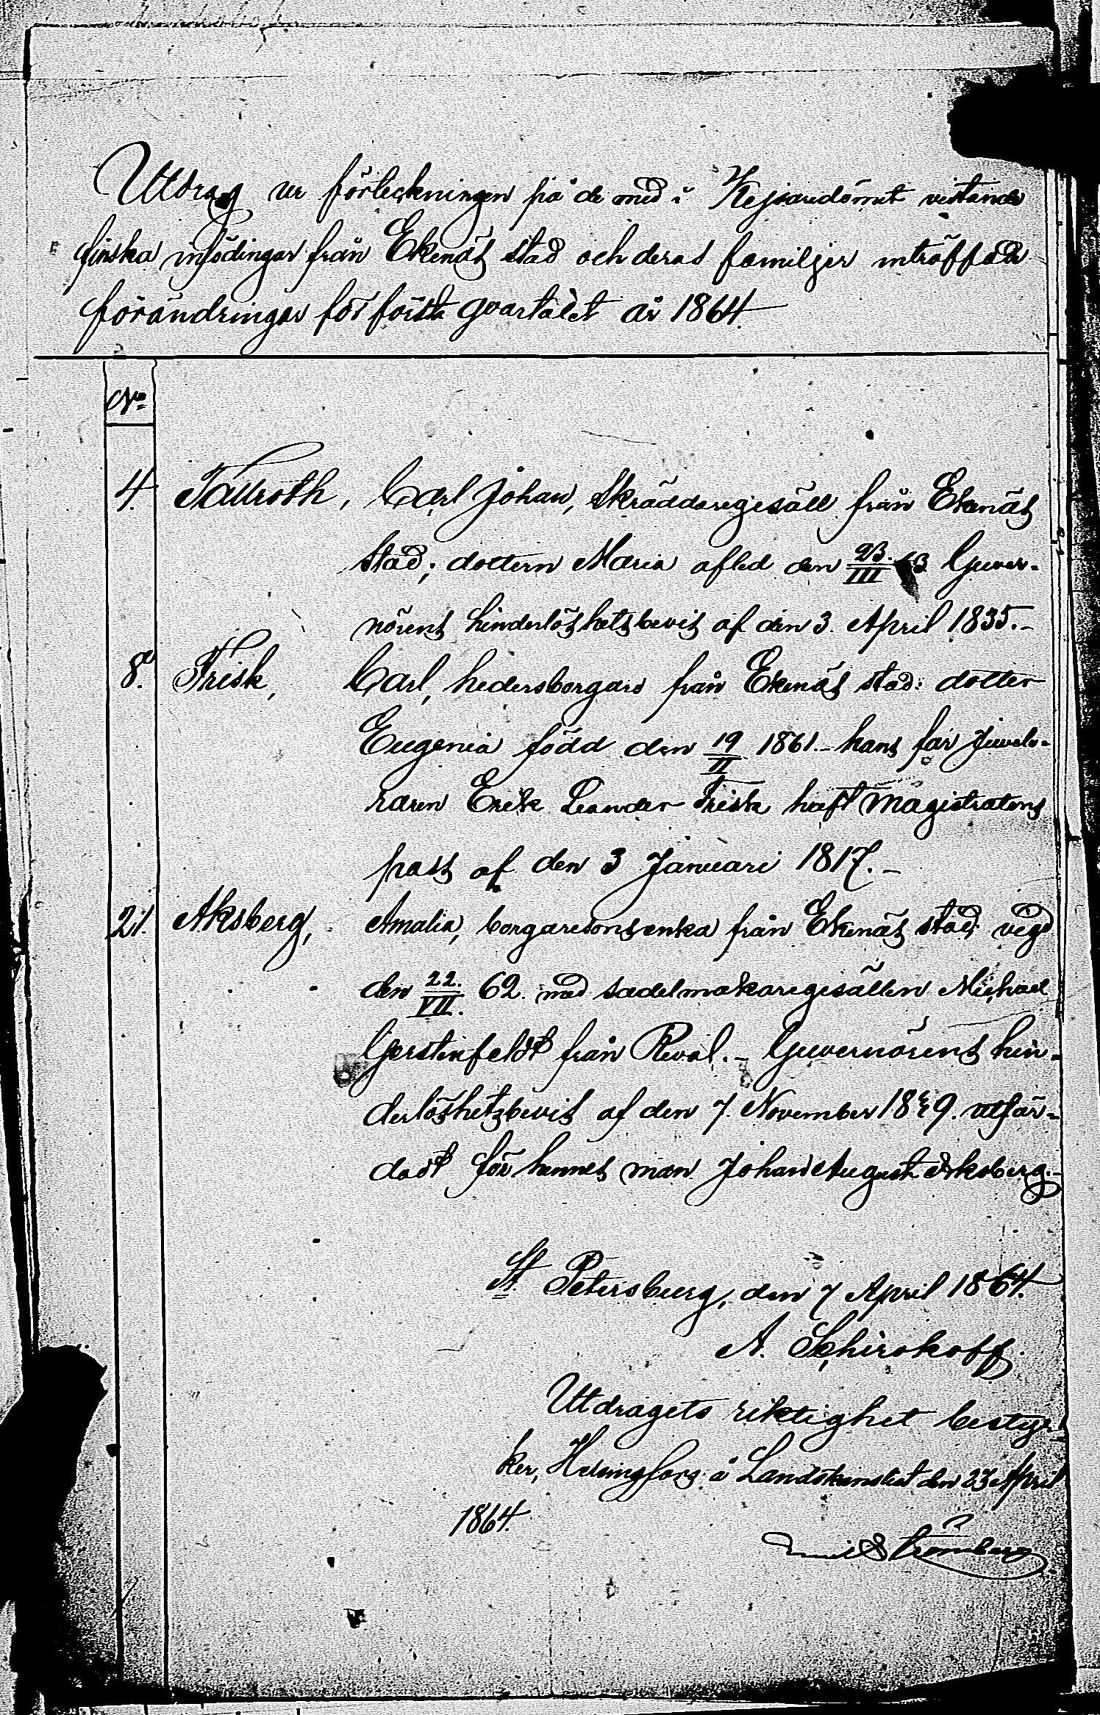 Utdrag ur förteckningen på de med i Kejsaredömet vistande
finska infödingar från Ekenäs stad och deras familjer inträffade
förändringar för första qvartalet år 1864.
No
4. Tallroth, Carl Johan, Skräddaregesäll från Ekenäs
stad; dottern Maria afled den 23/III 63 Guver-
nörens hinderlöshetsbevis af den 3. April 1835.-
8. Frisk, Carl, hedersborgare från Ekenäs stad: dotter
Eugenia född den 19/II 1861.- hans far juvele-
raren Erik Leander Frisk haft Magistratens
pass af den 3 Januari 1817.-
21. Aksberg, Amalia, borgaresonsenka från Ekenäs stad; vigd
den 22./VII. 62. med sadelmakaregesällen Michael
Gerstenfeldt från Reval.- Guvernörens hin-
derlöshetsbevis af den 7. November 1849. utfär-
dadt för hennes man Johan August Aksberg.-
St. Petersburg, den 7 April 1864.
A. Schirokoff.
Utdragets riktighet bestyr-
ker, Helsingfors å Landskansliet den 23 April
1864.
Emil Strömberg